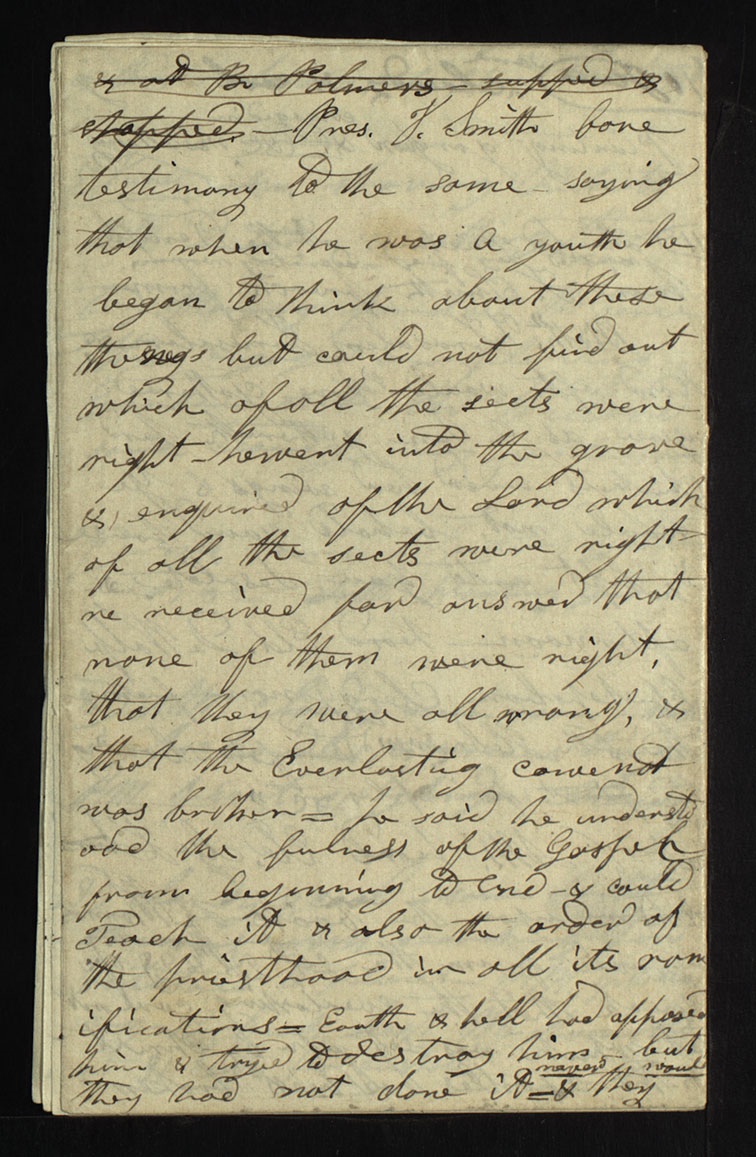 & at Br Palmers - supped &
stopped. - Pres. J. Smith bore
testimony to the same - saying
that when he was a youth he
began to think about these
things but could not find out
which of all the sects were
right - he went into the grove
& enquired of the Lord which
of all the sects were right -
re received for answer that
none of them were right,
that they were all wrong, &
that the Everlastig covena^t
was broken = he said he underst
ood the fulness of the Gospel
from beginning to end - & could
Teach it & also the order of
the priesthood in all its ram
ifications = Earth & hell had opposed
him & tryed to destroy him - but
they had not done it = & they never would